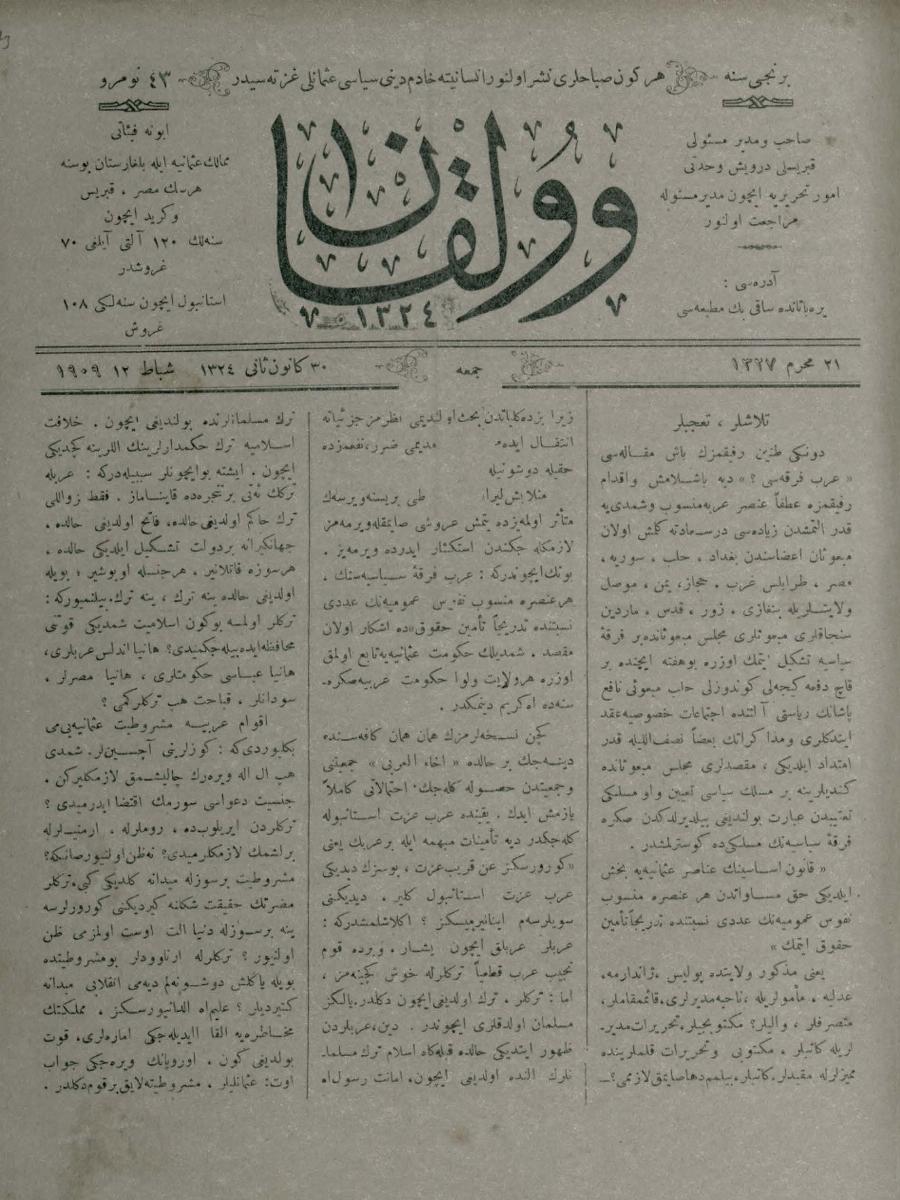 برنجی سنه
هركون صباحلری نشر اولنور انسانیته خادم دینی سیاسی عثمانلی غزته سیدر
٤٣ نومرو
صاحب ومدیر مسئولی
قبریسلی درویش وحدتی
امور تحریریه ایچون مدیر مسئوله
مراجعت اولنور
آدره سی :
یره باتانده ساقی بك مطبعه سی
وولقان
١٣٢٤
ابونه فیئاتی
ممالك عثمانیه ایله بلغارستان بوسنه
هرسك مصر ، قبریس
وكرید ایچون
سنه لك ١٢٠ آلتی آیلغی ٧٠
غروشدر
استانبول ایچون سنه لكی ١٠٨
غروش
٢١ محرم ١٣٢٧
جمعه
٣٠ كانون ثانی ١٣٢٤ شباط ١٢ ١٩٠٩
تلاشلر ، تعجبلر
دونكی طنین رفیقمزك باش مقاله سی
« عرب فرقه سی ؟ » دیه باشلامش واقدام
رفیقمزه عطفاً عنصر عربه منسوب وشمدی یه
قدر التمشدن زیاده سی درسعادته كلمش اولان
مبعوثان اعضاسندن بغداد ، حلب ، سوریه ،
مصر ، طرابلس غرب ، حجاز ، یمن ، موصل
ولایتلریله بنغازی ، زور ، قدس ، ماردین
سنجاقلری مبعوثلری مجلس مبعوثانده بر فرقۀ
سیاسیه تشكیل ایتمك اوزره بوهفته ایچنده بر
قاچ دفعه كیجه لی كوندوزلی حلب مبعوثی نافع
پاشانك ریاستی آلتنده اجتماعات خصوصیه عقد
ایتدكلری ومذاكراتك بعضاً نصف اللیله قدر
امتداد ایلدیكی ، مقصدلری مجلس مبعوثانده
كندیلرینه بر مسلك سیاسی تعیین واو مسلكی
تعقیبدن عبارت بولندیغی بیلدیرلدكدن صكره
فرقۀ سیاسیه نك مسلكی ده كوسترلمشدر .
« قانون اساسینك عناصر عثمانیه یه بخش
ایلدیكی حق مساواتدن هر عنصره منسوب
نفوس عمومیه نك عددی نسبتنده تدریجاً تأمین
حقوق ایتمك »
یعنی مذكور ولایتده پولیس ، ژاندارمه ،
عدلیه ، مأمورلریله ، ناحیه مدیرلری ، قائممقاملر ،
متصرفلر ، والیلر ؟ مكتوبجیلر ، تحریرات مدیر-
لریله كاتبلر ، مكتوبی وتحریرات قلملرینده
ممیزلرله مقیدلر ، كاتبلر ، بیلمم دها صایمق لازممی ؟ ــ
زیرا بزده كلیاتدن بحث اولندیمی نظرمز جزئیاته
انتقال ایدهم
مدیمی ضرر ، نفعمزده
حقیله دوشونیله
مثلا بش لیرا
طی بریسنه ویرسه ك
متأثر اولمه یزده یتمش غروشی صایمقله ویرمه من
لازمكله جكندن استكثار ایدرده ویرمه یز .
بونك ایچوندركه : عرب فرقۀ سیاسیه سنك ،
هر عنصره منسوب نفوس عمومیه نك عددی
نسبتنده تدریجاً تأمین حقوق » ده اشكار اولان
مقصد ، شمدیلك حكومت عثمانیه یه تابع اولمق
اوزره هر ولایت ولوا حكومت عربیه ، صكره-
سنه ده اه كریم دینمكدر .
كچن نسخه لرمزك همان همان كافه سنده
دینه جك بر حالده « اخاء العربی » جمعیتنی
وجمعیتدن حصوله كله جك احتمالاتی كاملاً
یازمش ایدك . یقینده عرب عزت استانبوله
كله جكدر دیه تأمینات مبهمه ایله بر عربك یعنی
« كورورسكز عن قریب عزت ، یوسزك دیدیكی
عرب عزت استانبول كلیر . دیدیكنی
سویلرسه م اینانیرمیسكز ؟ اكلاشلمشدركه :
عربلر عربلق ایچون یشار . وبرده قوم
نجیب عرب قطعیاً تركلرله خوش كچینه من ،
اما : تركلر ، ترك اولدیغی ایچون دكلدر ، یالكز
مسلمان اولدقلری ایچوندر . دین ، عربلردن
ظهور ایتدیكی حالده قبله كاه اسلام ترك مسلمـ
ـانلرك النده اولدیغی ایچون ، امانت رسول اه
ترك مسلمانلرنده بولندیغی ایچون . خلافت
اسلامیه ترك حكمدارلرینك اللرینه كچدیكی
ایچون . ایشته بو ایچونلر سببیله دركه : عربله
تركك ئه تی بر تنجره ده قایناماز . فقط زواللی
ترك حاكم اولدیغی حالده ، فاتح اولدیغی حالده ،
جهانكیرانه بر دولت تشكیل ایلدیكی حالده ،
هر سوزه قاتلانیر . هر جنسله اویوشیر ؛ بویله
اولدیغی حالده ینه ترك ، ینه ترك . بیلنمیوركه :
تركلر اولمسه بوكون اسلامیت شمدیكی قوتنی
محافظه ایده بیله جكمیدی ؟ هانیا اندلس عربلری ،
هانیا عباسی حكومتلری ، هانیا مصرلر .
سودانلر . قباحت هب تركلركمی ؟
اقوام عربیه مشروطیت عثمانیه یی می
بكلیوردی كه : كوزلرینی آچسین لر . شمدی
هپ ال اله ویره رك چالیشمق لازمكلیركن .
جنسیت دعواسی سورمك اقتضا ایدرمیدی ؟
تركلردن ایریلوبده ، روملرله . ارمنیلرله
براشمك لازمكلرمیدی ؟ نه ظن اولنیورصانكه ؟
مشروطیت بر سوزله میدانه كلدیكی كبی ، تركلر
مضرتك حقیقت شكلنه كیردیكنی كورورلرسه
ینه بر سوزله دنیا الت اوست اولمزمی ظن
اولنیور ؟ تركلرله ارناوودلر بومشروطیتده
بویله یاكلش دوشونه لم دیه می انقلابی میدانه
كتیردیلر ؟ علیم اه الدانیورسكز . مملكتك
مخاطره یه القا ایدیله جكی اماره لری ، قوت
بولدیغی كون . اوروپانك ویره جكی جواب
اوت : عثمانلیلر . مشروطیته لایق بر قوم دكلدر .